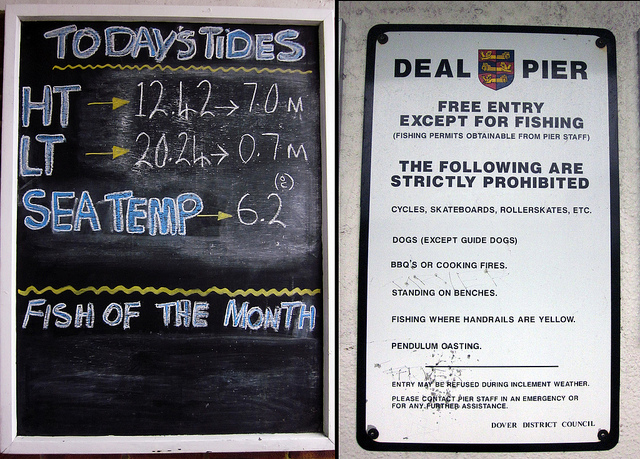 TODAY'S TIDES
HT → 12.42 → 7.0 M
LT → 20.24 → 0.7 M
(°C)
SEA TEMP → 6.2
FISH OF THE MONTH
DEAL PIER
FREE ENTRY
EXCEPT FOR FISHING
(FISHING PERMITS OBTAINABLE FROM PIER STAFF)
THE FOLLOWING ARE
STRICTLY PROHIBITED
CYCLES, SKATEBOARDS, ROLLERSKATES, ETC.
DOGS (EXCEPT GUIDE DOGS)
BBQ'S OR COOKING FIRES.
STANDING ON BENCHES.
FISHING WHERE HANDRAILS ARE YELLOW.
PENDULUM CASTING.
ENTRY MAY BE REFUSED DURING INCLEMENT WEATHER.
PLEASE CONTACT PIER STAFF IN AN EMERGENCY OR
FOR ANY FURTHER ASSISTANCE.
DOVER DISTRICT COUNCIL